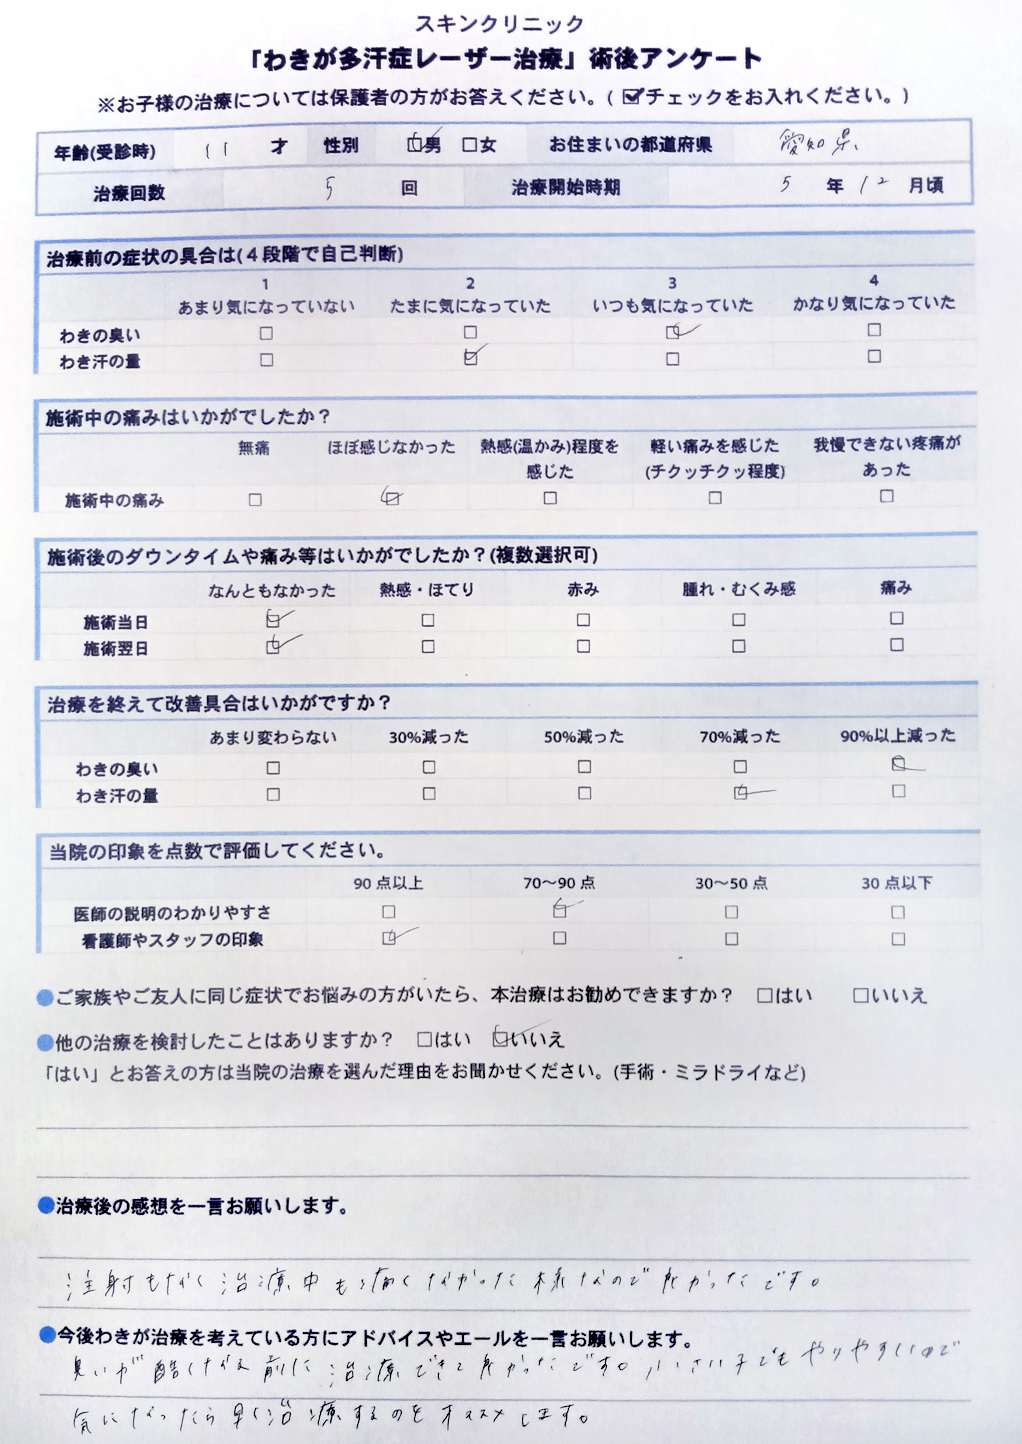 スキンクリニック
「わきが多汗症レーザー治療」術後アンケート
※お子様の治療については保護者の方がお答えください。(☑チェックをお入れください。)
年齢(受診時) 11 才 性別 ☑男 □女 お住まいの都道府県 愛知県
治療回数 5 回 治療開始時期 5 年 12 月頃
治療前の症状の具合は(４段階で自己判断)
1 2 3 4
あまり気になっていない たまに気になっていた いつも気になっていた かなり気になっていた
わきの臭い □ □ ☑ □
わき汗の量 □ ☑ □ □
施術中の痛みはいかがでしたか？
無痛 ほぼ感じなかった 熱感(温かみ)程度を 軽い痛みを感じた 我慢できない疼痛が
感じた (チクッチクッ程度) あった
施術中の痛み □ ☑ □ □ □
施術後のダウンタイムや痛み等はいかがでしたか？(複数選択可)
なんともなかった 熱感・ほてり 赤み 腫れ・むくみ感 痛み
施術当日 ☑ □ □ □ □
施術翌日 ☑ □ □ □ □
治療を終えて改善具合はいかがですか？
あまり変わらない 30%減った 50%減った 70%減った 90%以上減った
わきの臭い □ □ □ □ ☑
わき汗の量 □ □ □ ☑ □
当院の印象を点数で評価してください。
90 点以上 70～90 点 30～50 点 30 点以下
医師の説明のわかりやすさ □ ☑ □ □
看護師やスタッフの印象 ☑ □ □ □
●ご家族やご友人に同じ症状でお悩みの方がいたら、本治療はお勧めできますか？ □はい □いいえ
●他の治療を検討したことはありますか？ □はい ☑いいえ
「はい」とお答えの方は当院の治療を選んだ理由をお聞かせください。(手術・ミラドライなど)
●治療後の感想を一言お願いします。
注射もなく治療中も痛くなかった様なので良かったです。
●今後わきが治療を考えている方にアドバイスやエールを一言お願いします。
臭いが酷くなる前に治療できて良かったです。小さい子でもやりやすいので
気になったら早く治療するのをオススメします。